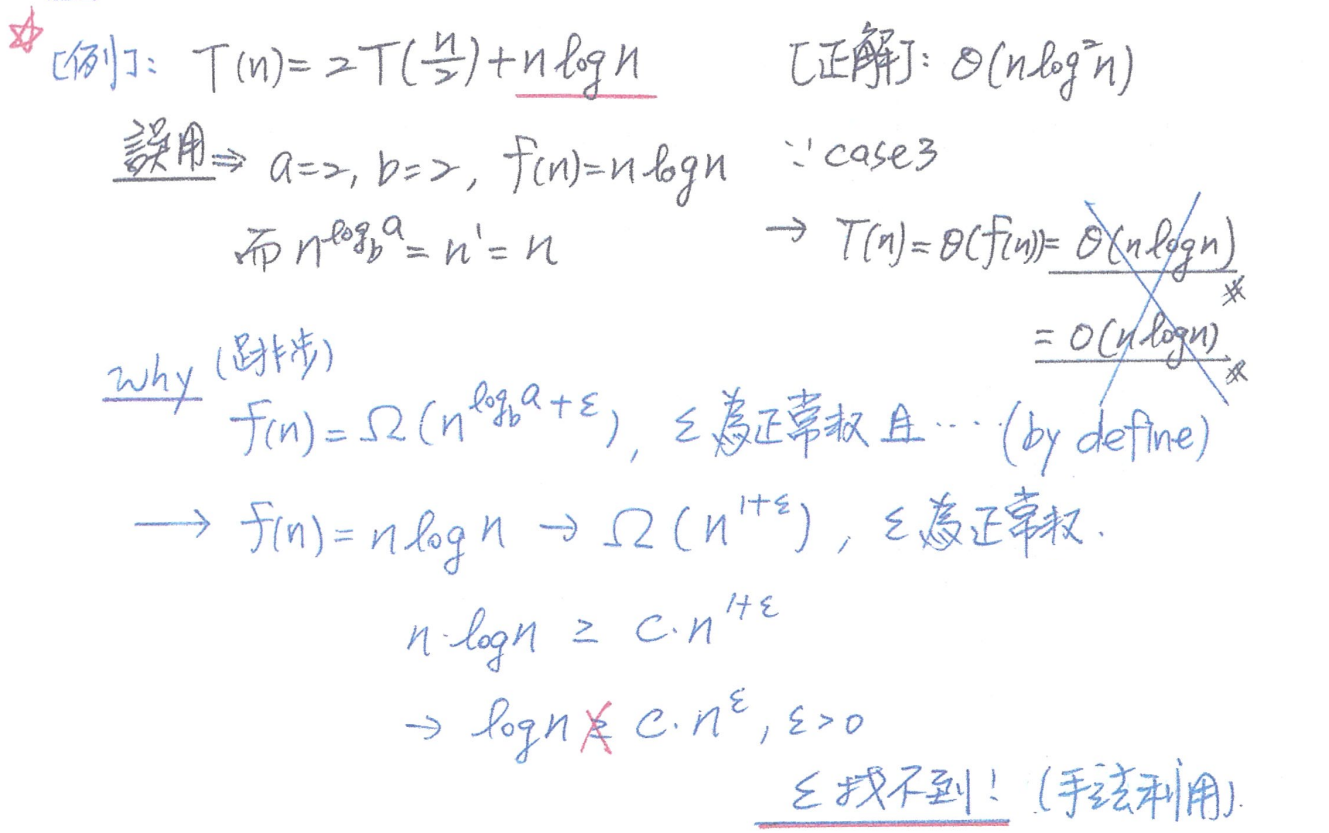 [例]: T(n)=2T(n/2)+n log n [正解]: Θ(n log²n)
誤用⇒ a=2, b=2, f(n)=n log n ∵ case3
而 n^{log_b a} = n¹ = n → T(n)=Θ(f(n))= Θ(n log n) ※
= O(n log n) ※
why
f(n)=Ω(n^{log_b a+ε}), ε為正常数 且… (by define)
→ f(n)=n log n → Ω(n^{1+ε}), ε為正常数.
n·log n ≥ c·n^{1+ε}
→ log n ≱ c·n^ε, ε>0
ε找不到! (手法利用).